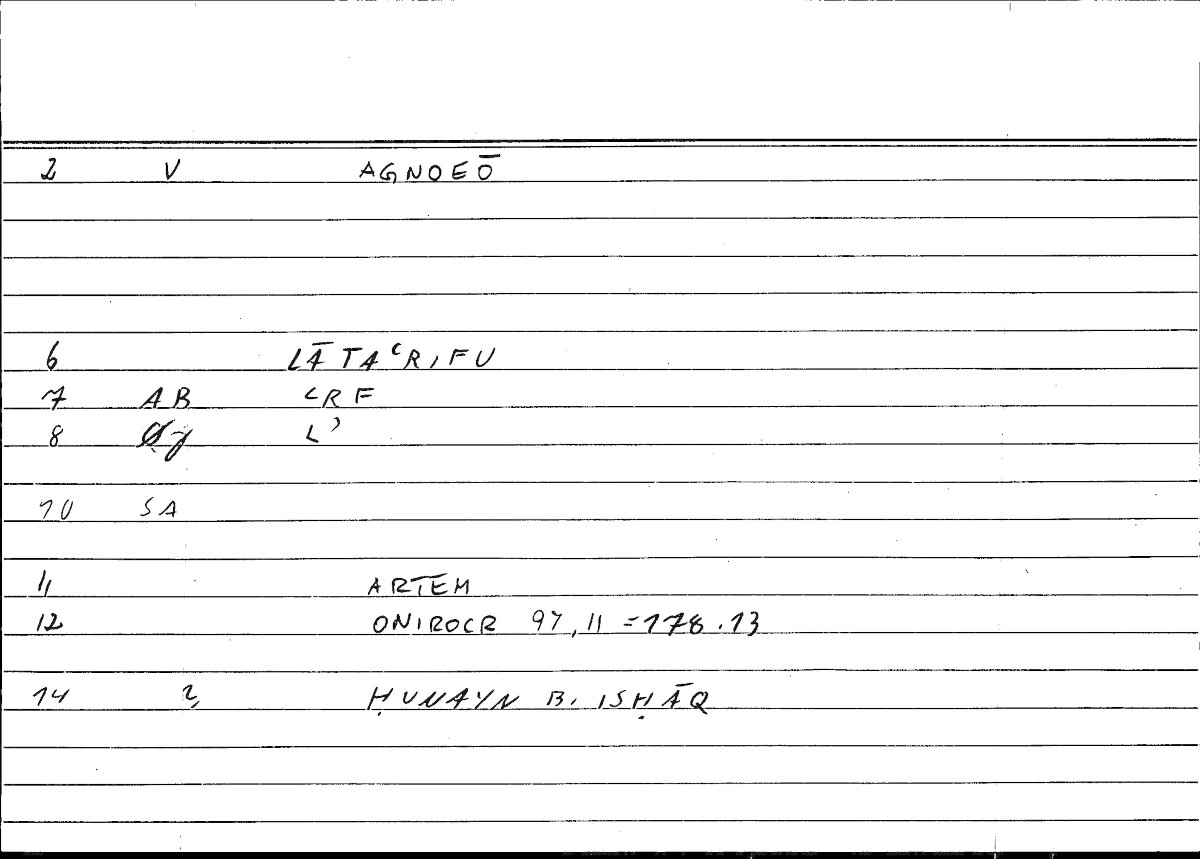 2 V AGNOEŌ
6 LĀ TAʿRIFU
7 AB ʿRF
8 Lʾ
10 SA
11 ARTEM
12 ONIROCR 97, 11 = 178.13
14 2, ḤUNAYN B. ISḤĀQ